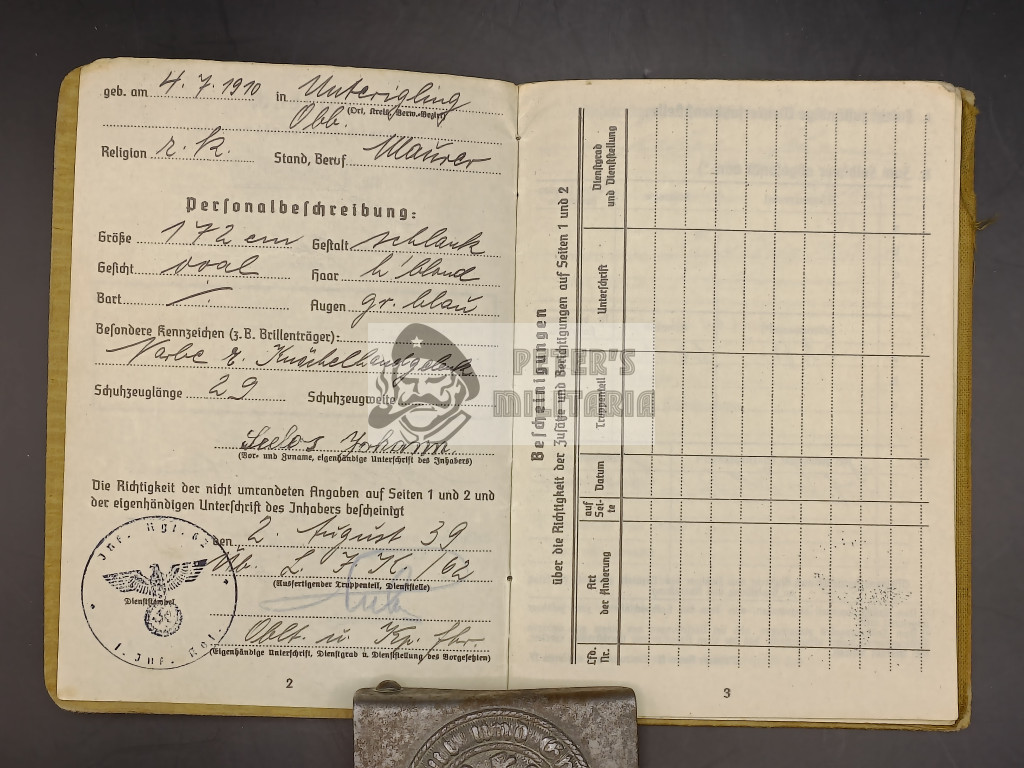 geb. am 4. 7. 1910 in Unterigling
Obb. (Ort, Kreis, Verw.-Bezirk)
Religion r. k. Stand, Beruf Maurer
Personalbeschreibung:
Größe 172 cm Gestalt schlank
Gesicht oval Haar h'blond
Bart ./. Augen gr. blau
Besondere Kennzeichen (z.B. Brillenträger):
Narbe r.
Schuhzeuglänge 29 Schuhzeugweite
Seelos Johann.
(Vor- und Zuname, eigenhändige Unterschrift des Inhabers)
Die Richtigkeit der nicht umrandeten Angaben auf Seiten 1 und 2 und
der eigenhändigen Unterschrift des Inhabers bescheinigt
den 2. August 39
L. J. K. /62
(Ausfertigender Truppenteil, Dienststelle)
Oblt. u. Kp. fhr.
(Eigenhändige Unterschrift, Dienstgrad u. Dienststellung des Vorgesetzten)
Inf. Rgt. 62
Dienststempel
Inf. Rgt.
2
Bescheinigungen
über die Richtigkeit der Zusätze und Berichtigungen auf Seiten 1 und 2
Lfd. Nr.
Art der Änderung
auf Sei-te
Datum
Truppenteil
Unterschrift
Dienstgrad und Dienststellung
3
PETER'S
MILITARIA